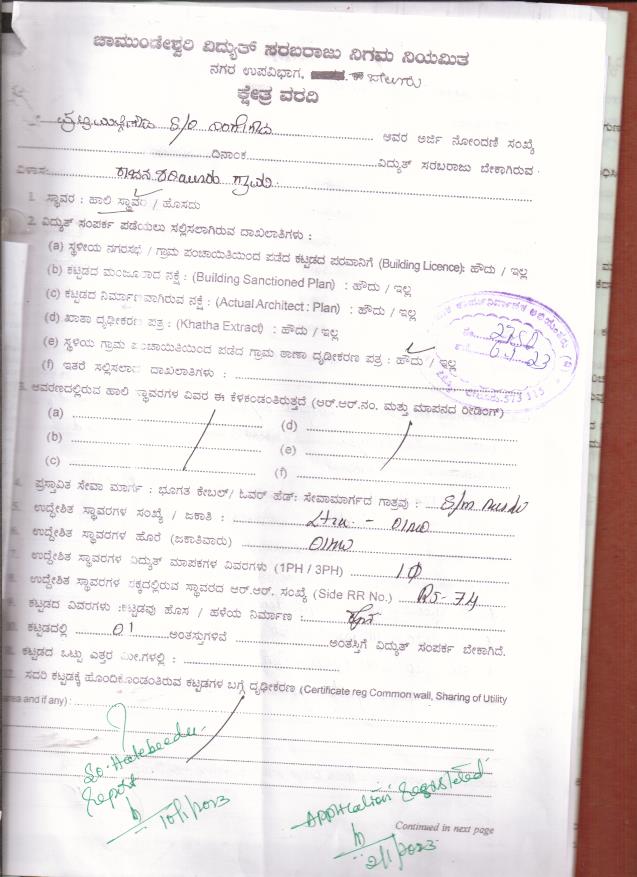 ಚಾಮುಂಡೇಶ್ವರಿ ವಿದ್ಯುತ್ ಸರಬರಾಜು ನಿಗಮ ನಿಯಮಿತ
ನಗರ ಉಪವಿಭಾಗ, ಬೇಲೂರು
ಕ್ಷೇತ್ರ ವರದಿ
S/o ಅವರ ಅರ್ಜಿ ನೋಂದಣಿ ಸಂಖ್ಯೆ
ದಿನಾಂಕ ವಿದ್ಯುತ್ ಸರಬರಾಜು ಬೇಕಾಗಿರುವ
ವಿಳಾಸ: ಗ್ರಾಮ
1. ಸ್ಥಾವರ : ಹಾಲಿ ಸ್ಥಾವರ / ಹೊಸದು
2. ವಿದ್ಯುತ್ ಸಂಪರ್ಕ ಪಡೆಯಲು ಸಲ್ಲಿಸಲಾಗಿರುವ ದಾಖಲಾತಿಗಳು :
(a) ಸ್ಥಳೀಯ ನಗರಸಭೆ / ಗ್ರಾಮ ಪಂಚಾಯಿತಿಯಿಂದ ಪಡೆದ ಕಟ್ಟಡದ ಪರವಾನಿಗೆ (Building Licence): ಹೌದು / ಇಲ್ಲ
(b) ಕಟ್ಟಡದ ಮಂಜೂರಾದ ನಕ್ಷೆ : (Building Sanctioned Plan) : ಹೌದು / ಇಲ್ಲ
(c) ಕಟ್ಟಡದ ನಿರ್ಮಾಣವಾಗಿರುವ ನಕ್ಷೆ : (Actual Architect : Plan) : ಹೌದು / ಇಲ್ಲ
(d) ಖಾತಾ ದೃಢೀಕರಣ ಪತ್ರ : (Khatha Extract) : ಹೌದು / ಇಲ್ಲ
(e) ಸ್ಥಳೀಯ ಗ್ರಾಮ ಪಂಚಾಯಿತಿಯಿಂದ ಪಡೆದ ಗ್ರಾಮ ಠಾಣಾ ದೃಢೀಕರಣ ಪತ್ರ : ಹೌದು / ಇಲ್ಲ
(f) ಇತರೆ ಸಲ್ಲಿಸಲಾದ ದಾಖಲಾತಿಗಳು :
2750
6.1.23
573 115
3. ಆವರಣದಲ್ಲಿರುವ ಹಾಲಿ ಸ್ಥಾವರಗಳ ವಿವರ ಈ ಕೆಳಕಂಡಂತಿರುತ್ತದೆ (ಆರ್.ಆರ್.ನಂ. ಮತ್ತು ಮಾಪನದ ರೀಡಿಂಗ್)
(a) (d)
(b) (e)
(c) (f)
4. ಪ್ರಸ್ತಾವಿತ ಸೇವಾ ಮಾರ್ಗ : ಭೂಗತ ಕೇಬಲ್/ ಓವರ್ ಹೆಡ್: ಸೇವಾಮಾರ್ಗದ ಗಾತ್ರವು : S/m
5. ಉದ್ದೇಶಿತ ಸ್ಥಾವರಗಳ ಸಂಖ್ಯೆ / ಜಕಾತಿ :
6. ಉದ್ದೇಶಿತ ಸ್ಥಾವರಗಳ ಹೊರೆ (ಜಕಾತಿವಾರು)
7. ಉದ್ದೇಶಿತ ಸ್ಥಾವರಗಳ ವಿದ್ಯುತ್ ಮಾಪಕಗಳ ವಿವರಗಳು (1PH / 3PH) 1Φ
8. ಉದ್ದೇಶಿತ ಸ್ಥಾವರಗಳ ಪಕ್ಕದಲ್ಲಿರುವ ಸ್ಥಾವರದ ಆರ್.ಆರ್. ಸಂಖ್ಯೆ (Side RR No.) RS-74
9. ಕಟ್ಟಡದ ವಿವರಗಳು :ಕಟ್ಟಡವು ಹೊಸ / ಹಳೆಯ ನಿರ್ಮಾಣ :
10. ಕಟ್ಟಡದಲ್ಲಿ 01 ಅಂತಸ್ತುಗಳಿವೆ ಅಂತಸ್ತಿಗೆ ವಿದ್ಯುತ್ ಸಂಪರ್ಕ ಬೇಕಾಗಿದೆ.
11. ಕಟ್ಟಡದ ಒಟ್ಟು ಎತ್ತರ ಮೀ.ಗಳಲ್ಲಿ :
12. ಸದರಿ ಕಟ್ಟಡಕ್ಕೆ ಹೊಂದಿಕೊಂಡಂತಿರುವ ಕಟ್ಟಡಗಳ ಬಗ್ಗೆ ದೃಢೀಕರಣ (Certificate reg Common wall, Sharing of Utility
area and if any) :
So. Halebeedu
Report
10/1/2023
Application Registered
2/1/2023
Continued in next page